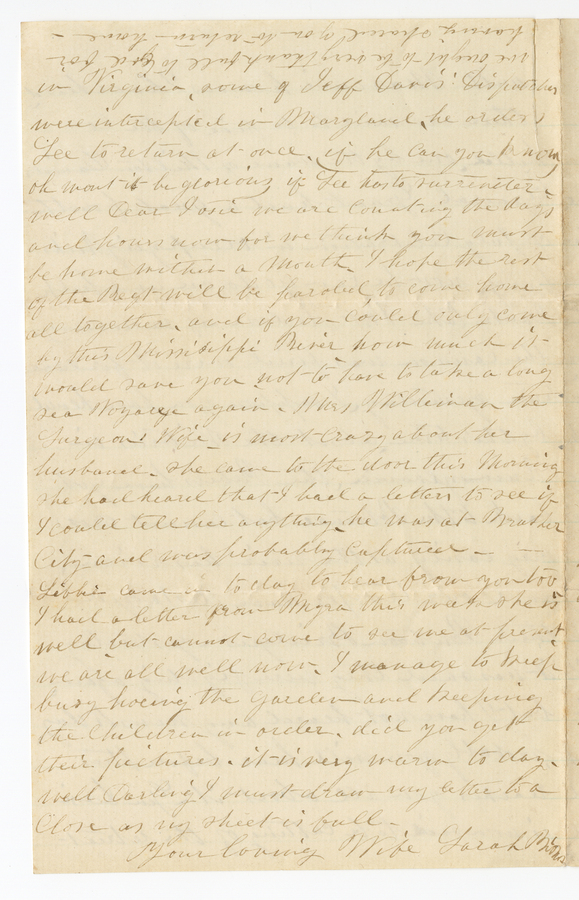 we ought to be very thankfull to god for
having spared you to return home -
in Virginia, some of Jeff Davis' Dispatches
were intercepted in Maryland, he orders
Lee to return at once, if he can you know,
oh wont it be glorious, if Lee has to surrender.
well Dear Josie we are Counting the days
and hours now for we think you must
be home within a Month. I hope the rest
of the Regt will be paroled, to come home
all together, and if you Could only come
up this Mississippi River how much it
would save you not to have to take a long
sea Voyage again. Mrs Williman the
Surgeons Wife is most Crazy about her
husband. she came to the door this Morning
she had heard that I had a letter to see if
I could tell her anything, he was at Brashier
City and was probably Captured -
Libbie came in to day to hear from you too
I had a letter from Myra this week she is
well but cannot come to see me at present
we are all well now. I manage to keep
busy hoeing the Garden and keeping
the Children in order. did you get
their pictures. it is very warm to day.
well Darling I must draw my letter to a
Close as my sheet is full.
Your loving Wife Sarah